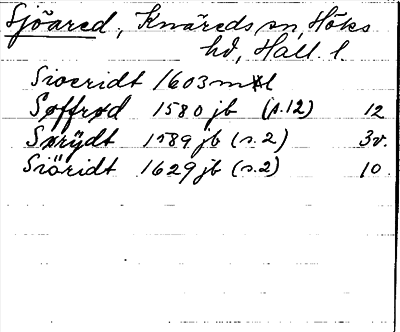 Sjöared, Knäreds sn, Höks
hd, Hall. l.
Sioeridt 1603 mtl
Søffrød 1580 jb (s.12) 12
Sørÿdt 1589 jb (s.2) 3v.
Siöridt 1629 jb (s.2) 10.